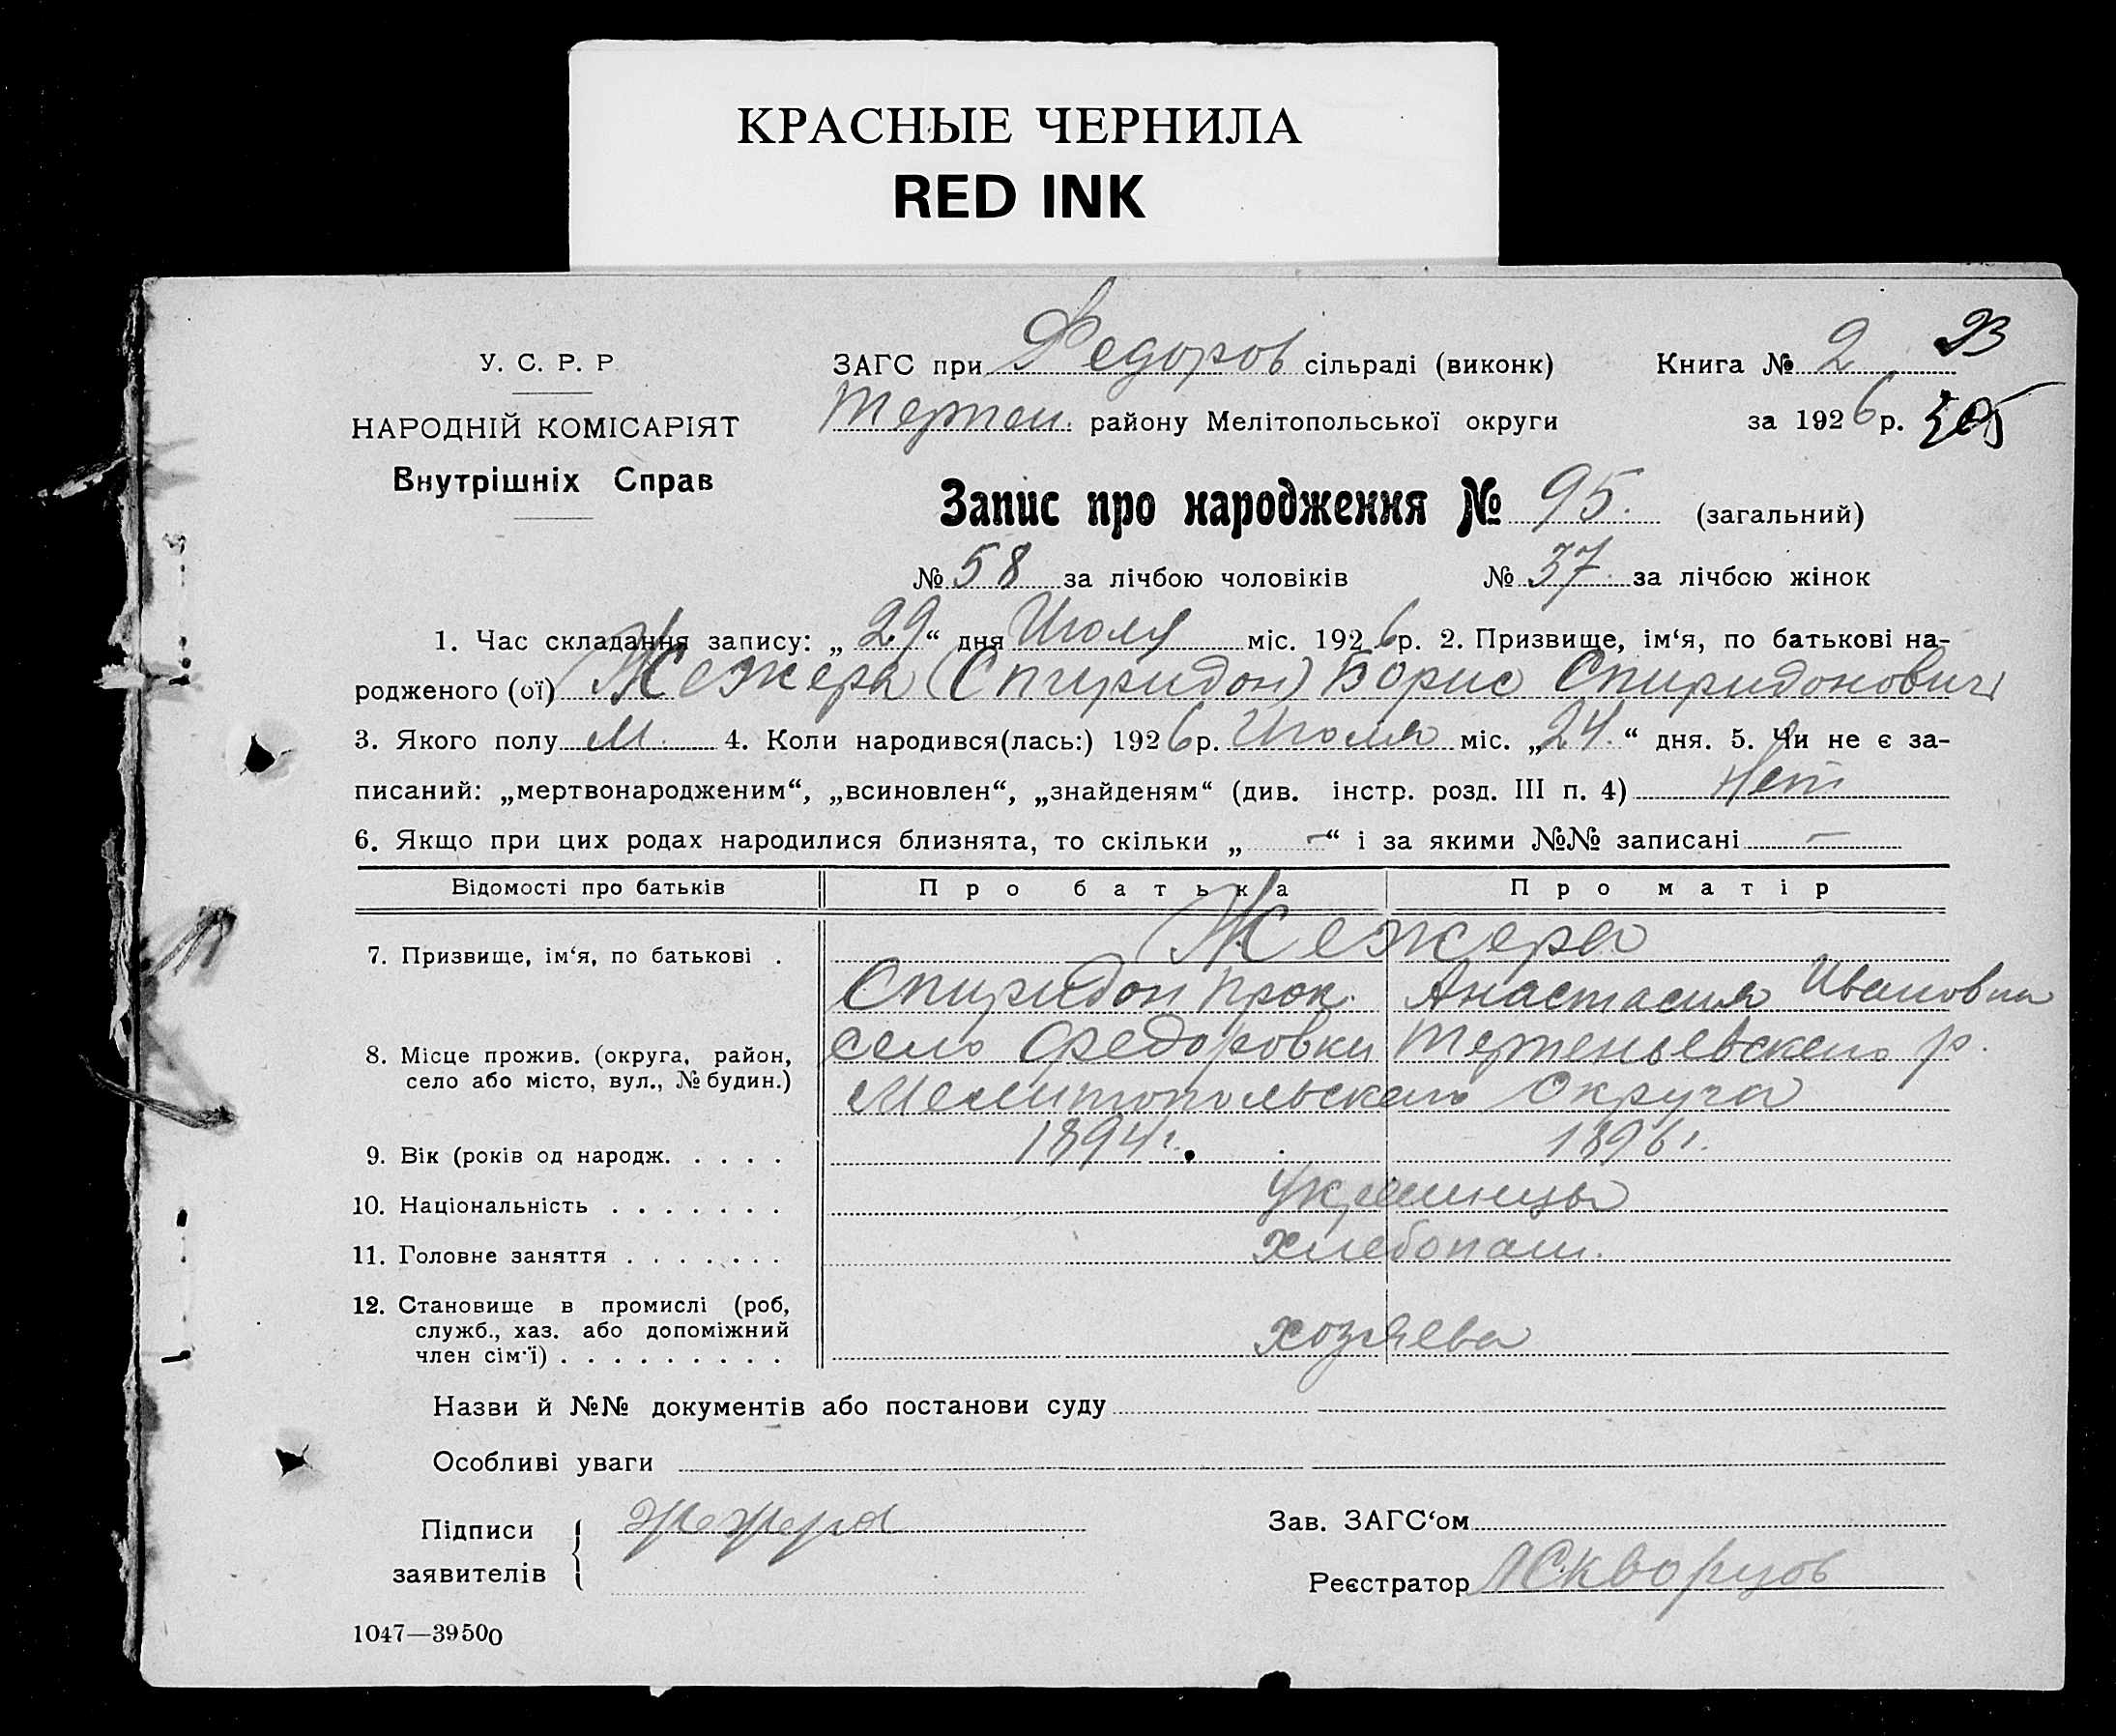 КРАСНЫЕ ЧЕРНИЛА
RED INK
У. С. Р. Р
НАРОДНІЙ КОМІСАРІЯТ
Внутрішніх Справ
ЗАГС при Федоров сільраді (виконк) Книга № 2 23
Терпен. району Мелітопольської округи за 1926 р.
Запис про народження № 95. (загальний)
№ 58 за лічбою чоловіків № 37. за лічбою жінок
1. Час складання запису: „29“ дня Июля міс. 1926 р. 2. Призвище, ім‘я, по батькові на-
родженого (ої) Жежера (Спиридон) Борис Спиридонович
3. Якого полу М. 4. Коли народився(лась:) 1926 р. Июля міс. „24.“ дня. 5. Чи не є за-
писаний: „мертвонародженим“, „всиновлен“, „знайденям“ (див. інстр. розд. III п. 4) Нет
6. Якщо при цих родах народилися близнята, то скільки „ – “ і за якими №№ записані –
Відомості про батьків Про батька Про матір
7. Призвище, ім‘я, по батькові . Жежера
Спиридон Прок. Анастасия Ивановна
8. Місце прожив. (округа, район, село Федоровки Терпеньевского р.
село або місто, вул., № будин.) Мелитопольского Округа
9. Вік (років од народж. . . . . 1894г. 1896г.
10. Національність . . . . . . . Украинцы
11. Головне заняття . . . . . . . хлебопаш.
12. Становище в промислі (роб,
служб., хаз. або допоміжний
член сім‘ї) . . . . . . . . . хозяева
Назви й №№ документів або постанови суду
Особливі уваги
Підписи Жежера Зав. ЗАГС‘ом
заявителів Реєстратор Скворцов
1047—39500